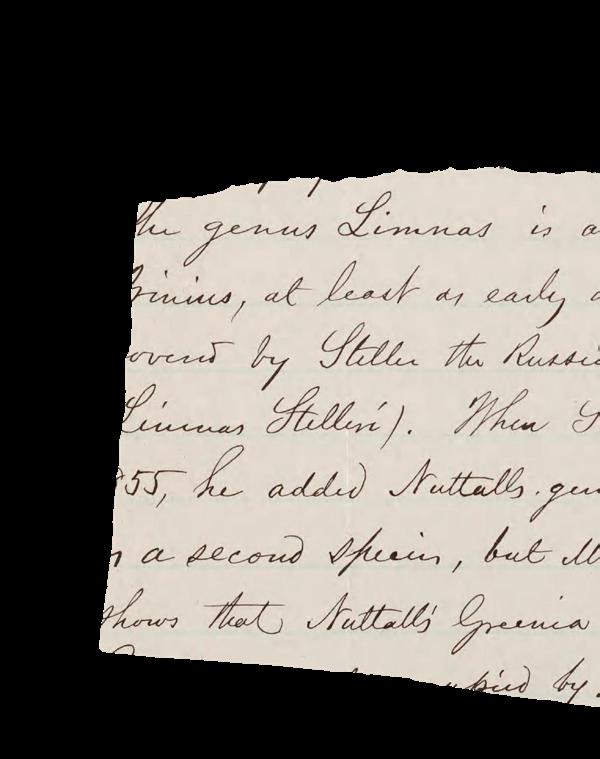 the genus Limnas is a
Trinius, at least as early a
overed by Steller the Russia
Limnas Stelleri). When S
855, he added Nuttalls gen
a second species, but M
shows that Nuttall's Greenia
pied by